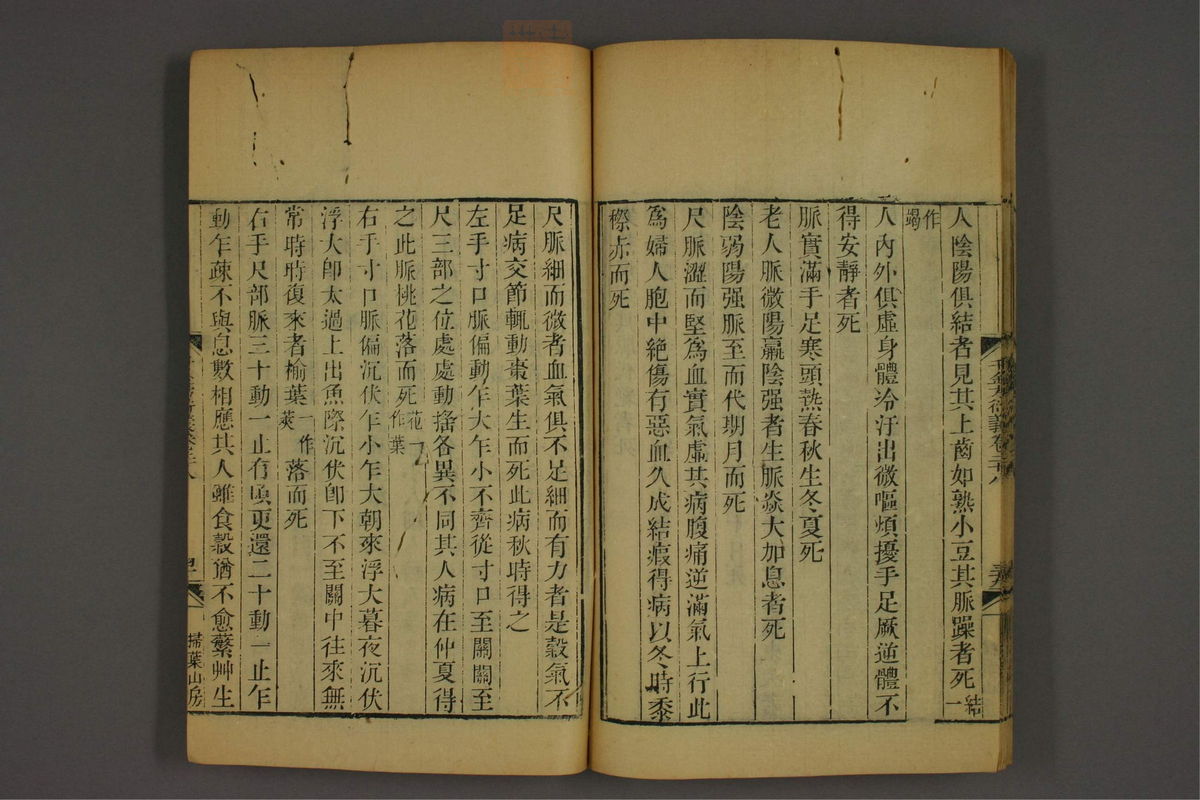 人陰陽俱結者見其上齒如熟小豆其脈躁者死結一
作竭
人內外俱虛身體冷汗出微嘔煩擾手足厥逆體不
得安靜者死
脈實滿手足寒頭熱春秋生冬夏死
老人脈微陽羸陰强者生脈焱大加息者死
陰弱陽强脈至而代期月而死
尺脈澀而堅為血實氣虛其病腹痛逆滿氣上行此
為婦人胞中絕傷有惡血久成結瘕得病以冬時黍
穄赤而死
尺脈細而微者血氣俱不足細而有力者是穀氣不
足病交節輒動棗葉生而死此病秋時得之
左手寸口脈偏動乍大乍小不齊從寸口至關關至
尺三部之位處處動搖各異不同其人病在仲夏得
之此脈桃花落而死花一作葉
右手寸口脈偏沉伏乍小乍大朝來浮大暮夜沉伏
浮大卽太過上出魚際沉伏卽下不至關中往來無
常時時復來者榆葉一作莢落而死
右手尺部脈三十動一止有頃更還二十動一止乍
動乍疎不與息數相應其人雖食穀猶不愈蘩艸生
掃葉山房